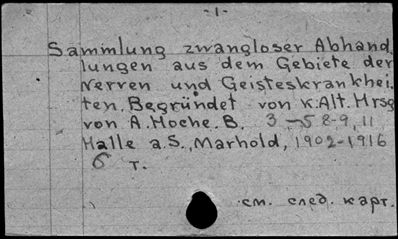 -1-
Sammlung zwangloser Abhand
lungen aus dem Gebiete der
Nerven und Geisteskrankhei.
ten. Begründet von K.Alt. Hrsg
von A. Hoche. B. 3-5 8-9, 11
Halle a.S., Marhold, 1902-1916
6 т.
см. след. карт.